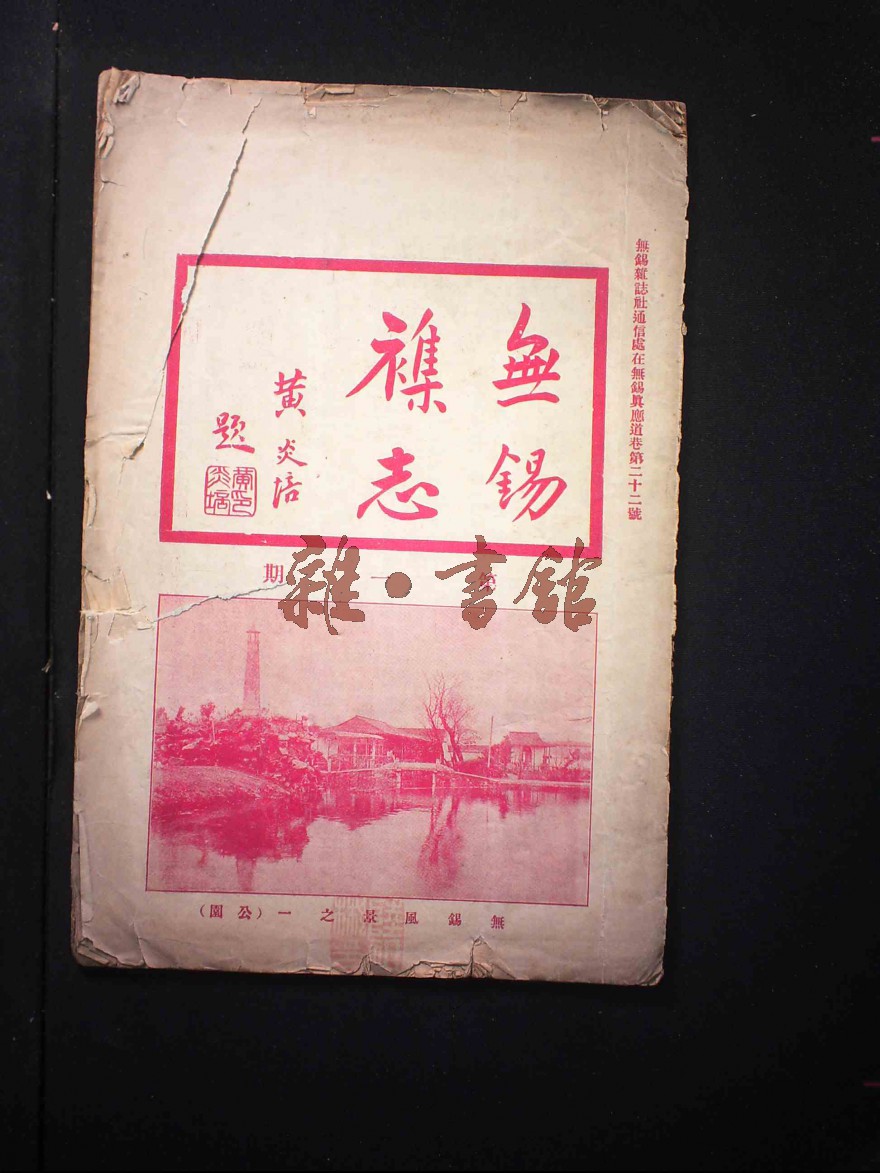 無錫雜誌社通信處在無錫眞應道巷第二十二號
無錫
襍志
黃炎培
題
黃炎培印
第一期
雜·書館
無錫風景之一（公園）